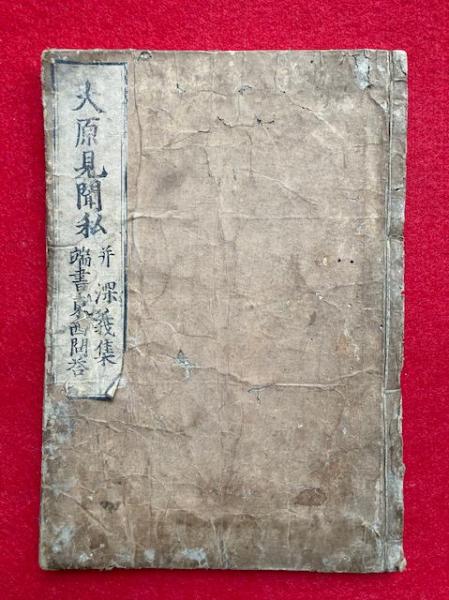 大原見聞私
并深義集
端書東西問答